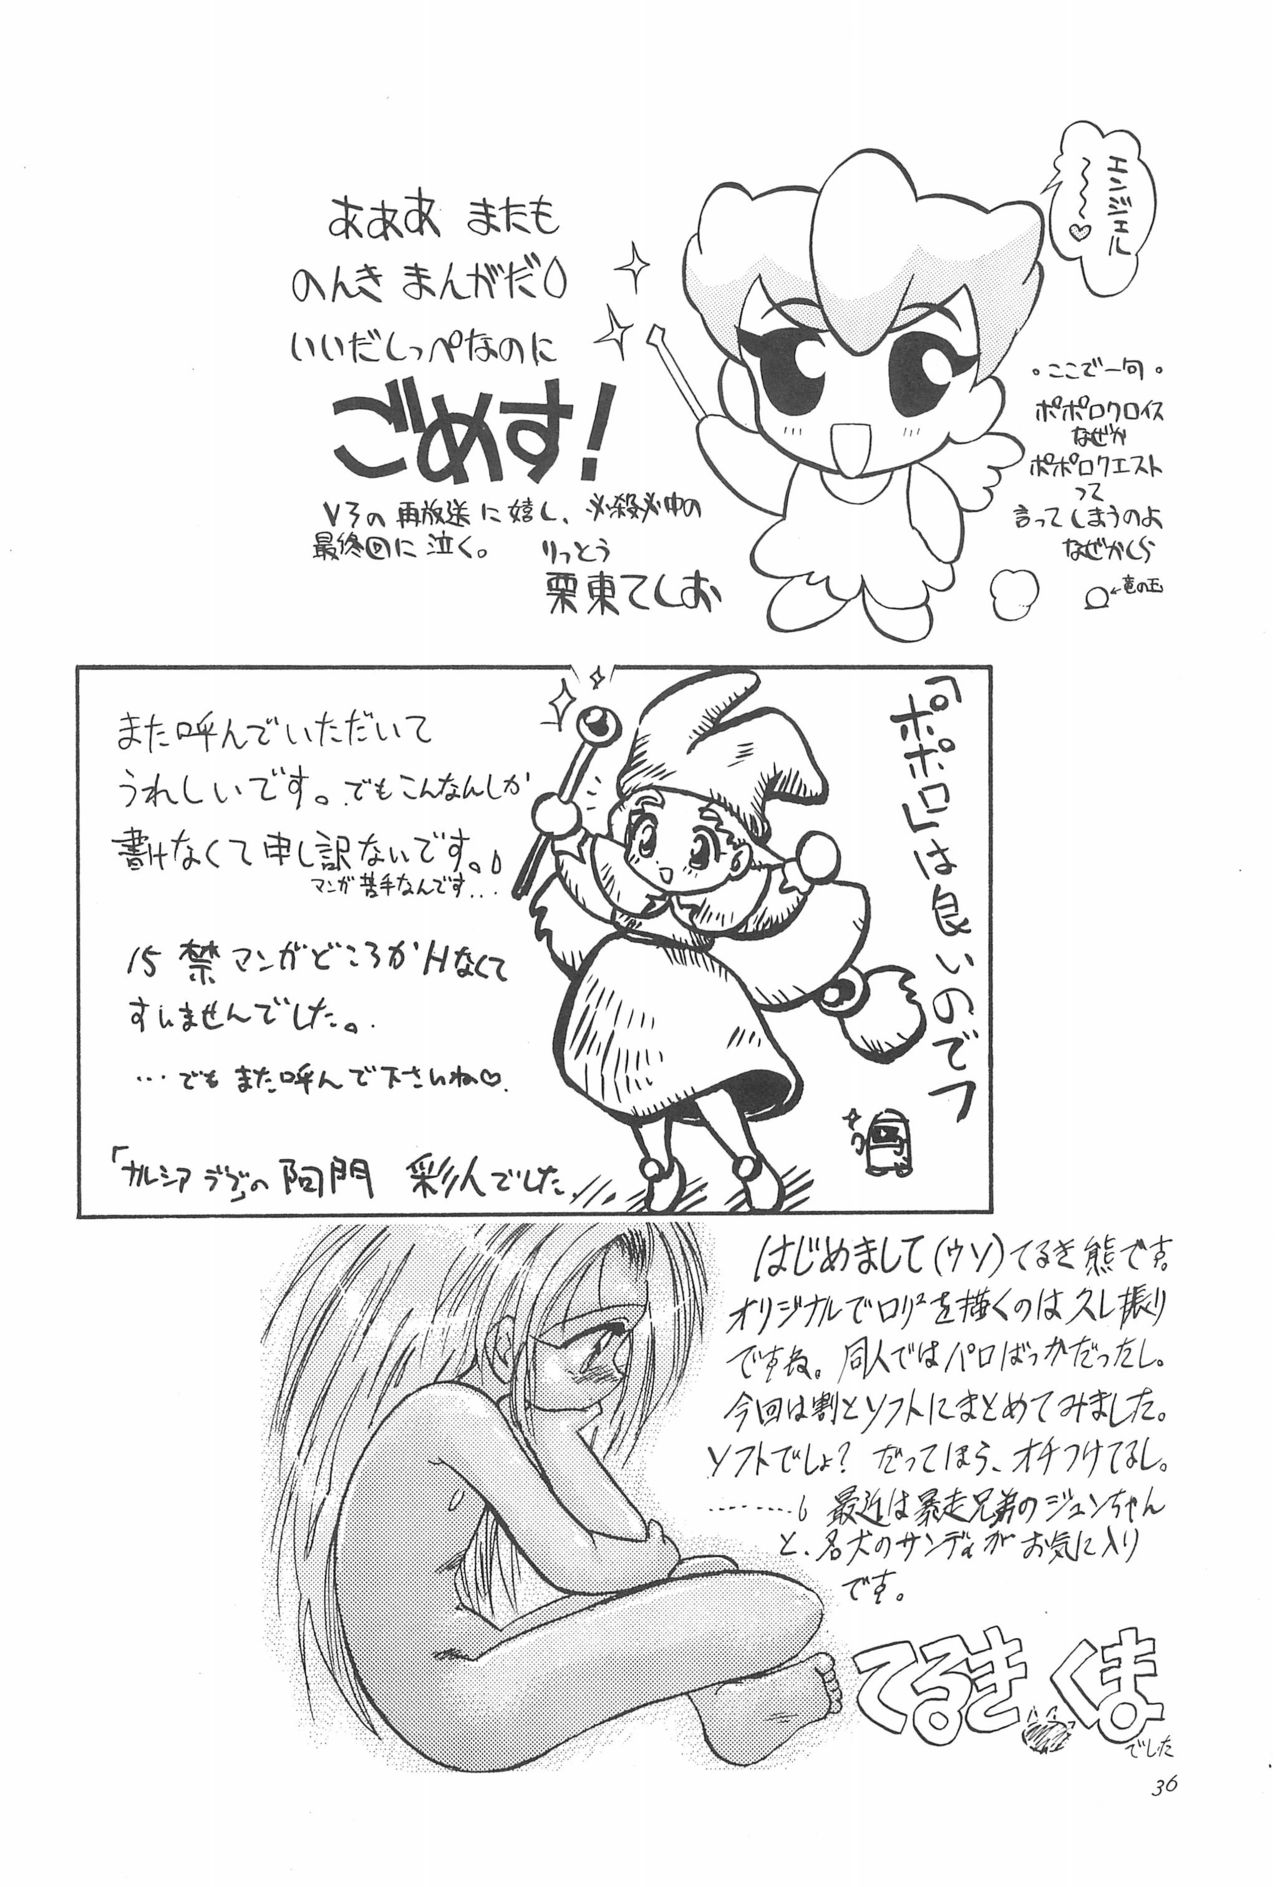 エンジェル
〜〜〜〜♡
あああ またも
のんき まんがだ
いいだしっぺなのに
ごめす!
V3の 再放送に嬉し、必殺必中の
最終回に 泣く。
りっとう
栗東てしお
。ここで一句。
ポポロクロイス
なぜか
ポポロクエスト
って
言ってしまうのよ
なぜかしら
←竜の玉
「ポポロ」は良いのでフ
また呼んでいただいて
うれしいです。でもこんなんしか
書けなくて申し訳ないです。
マンガ 苦手なんです...
15禁マンガどころかHなくて
すいませんでした。
…でも また呼んで下さいね♡.
「ナルシア ラブ」の 阿門 彩人でした.
はじめまして(ウソ)てるき熊です。
オリジナルでロリ²を描くのは久し振り
ですね。同人ではパロばっかだったし。
今回は割とソフトにまとめてみました。
ソフトでしょ? だってほら、オチつけてるし。
最近は暴走兄弟のジュンちゃん
と、名犬のサンディがお気に入り
です。
てるきくま
でした
36